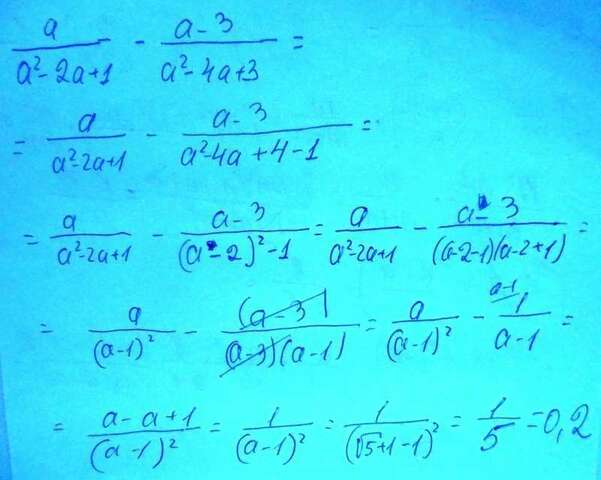 a/(a²-2a+1) - (a-3)/(a²-4a+3) =
= a/(a²-2a+1) - (a-3)/(a²-4a+4-1) =
= a/(a²-2a+1) - (a-3)/((a-2)²-1) = a/(a²-2a+1) - (a-3)/((a-2-1)(a-2+1)) =
= a/(a-1)² - (a-3)/((a-3)(a-1)) = a/(a-1)² - a-1/ 1/(a-1) =
= (a-a+1)/(a-1)² = 1/(a-1)² = 1/(√5+1-1)² = 1/5 = 0,2